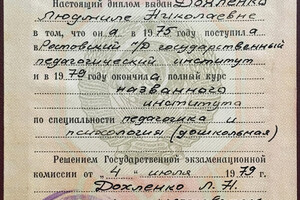 Настоящий диплом выдан Дохленко
Людмиле Николаевне
в том, что она в 1975 году поступила
в Ростовский н/Д государственный
педагогический институт
и в 1979 году окончила полный курс
названного
института
по специальности педагогика и
психология (дошкольная)
Решением Государственной экзаменационной
комиссии от "4" июля 1979 г.
Дохленко Л. Н.